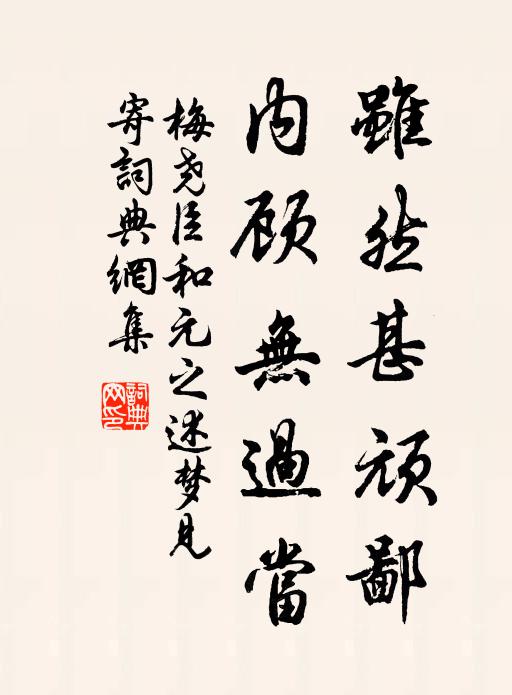 雖然甚頑鄙
内顾無過當
梅尧臣和元之述梦見
寄詞典網集
詞典网印